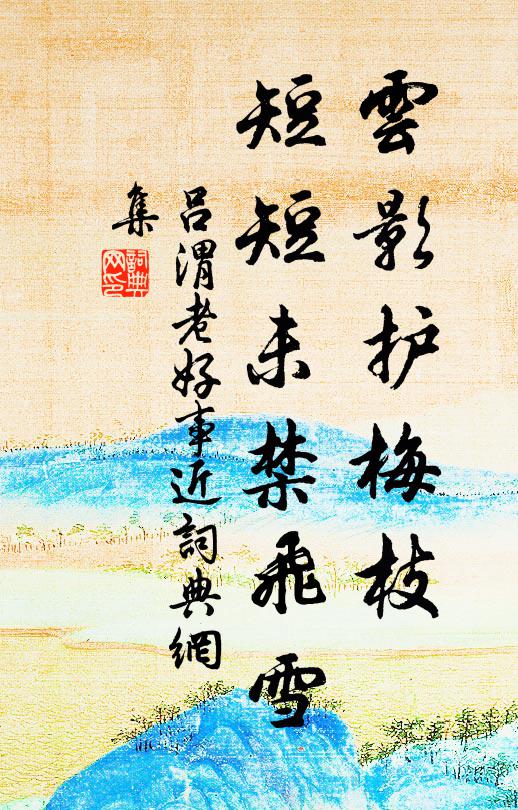 雲影护梅枝
短短未禁飛雪
吕渭老好事近詞典網
集
詞典
网印